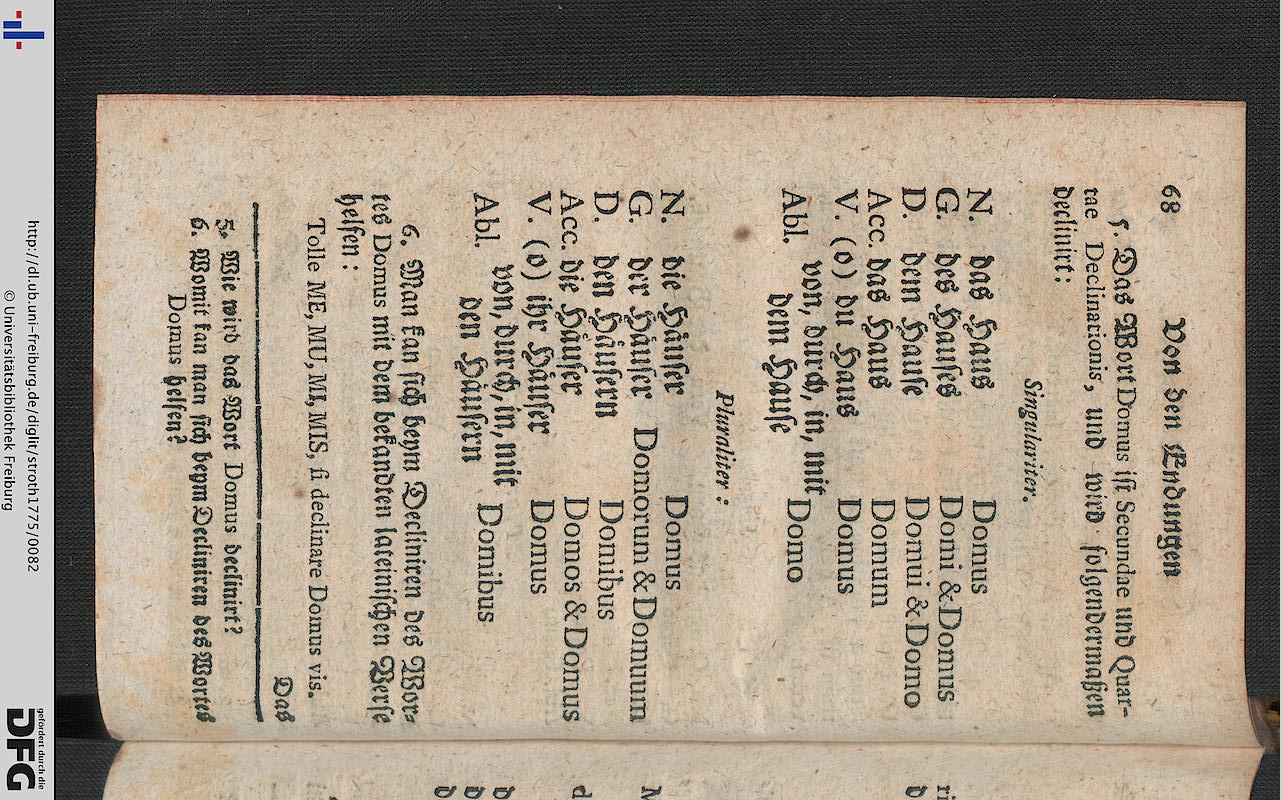 68 Von den Endungen
5. Das Wort Domus ist Secundae und Quar-
tae Declinationis, und wird folgendermaßen
declinirt:
Singulariter.
N. das Haus Domus
G. des Hauses Domi & Domus
D. dem Hause Domui & Domo
Acc. das Haus Domum
V. (o) du Haus Domus
Abl. von, durch, in, mit
dem Hause Domo
Pluraliter:
N. die Häuser Domus
G. der Häuser Domorum & Domuum
D. den Häusern Domibus
Acc. die Häuser Domos & Domus
V. (o) ihr Häuser Domus
Abl. von, durch, in, mit
den Häusern Domibus
6. Man kan sich beym Decliniren des Wor-
tes Domus mit dem bekandten lateinischen Verse
helfen:
Tolle ME, MU, MI, MIS, si declinare Domus vis.
Das
5. Wie wird das Wort Domus declinirt?
6. Womit kan man sich beym Decliniren des Wortes
Domus helfen?
http://dl.ub.uni-freiburg.de/diglit/stroth1775/0082
© Universitätsbibliothek Freiburg
gefördert durch die
DFG